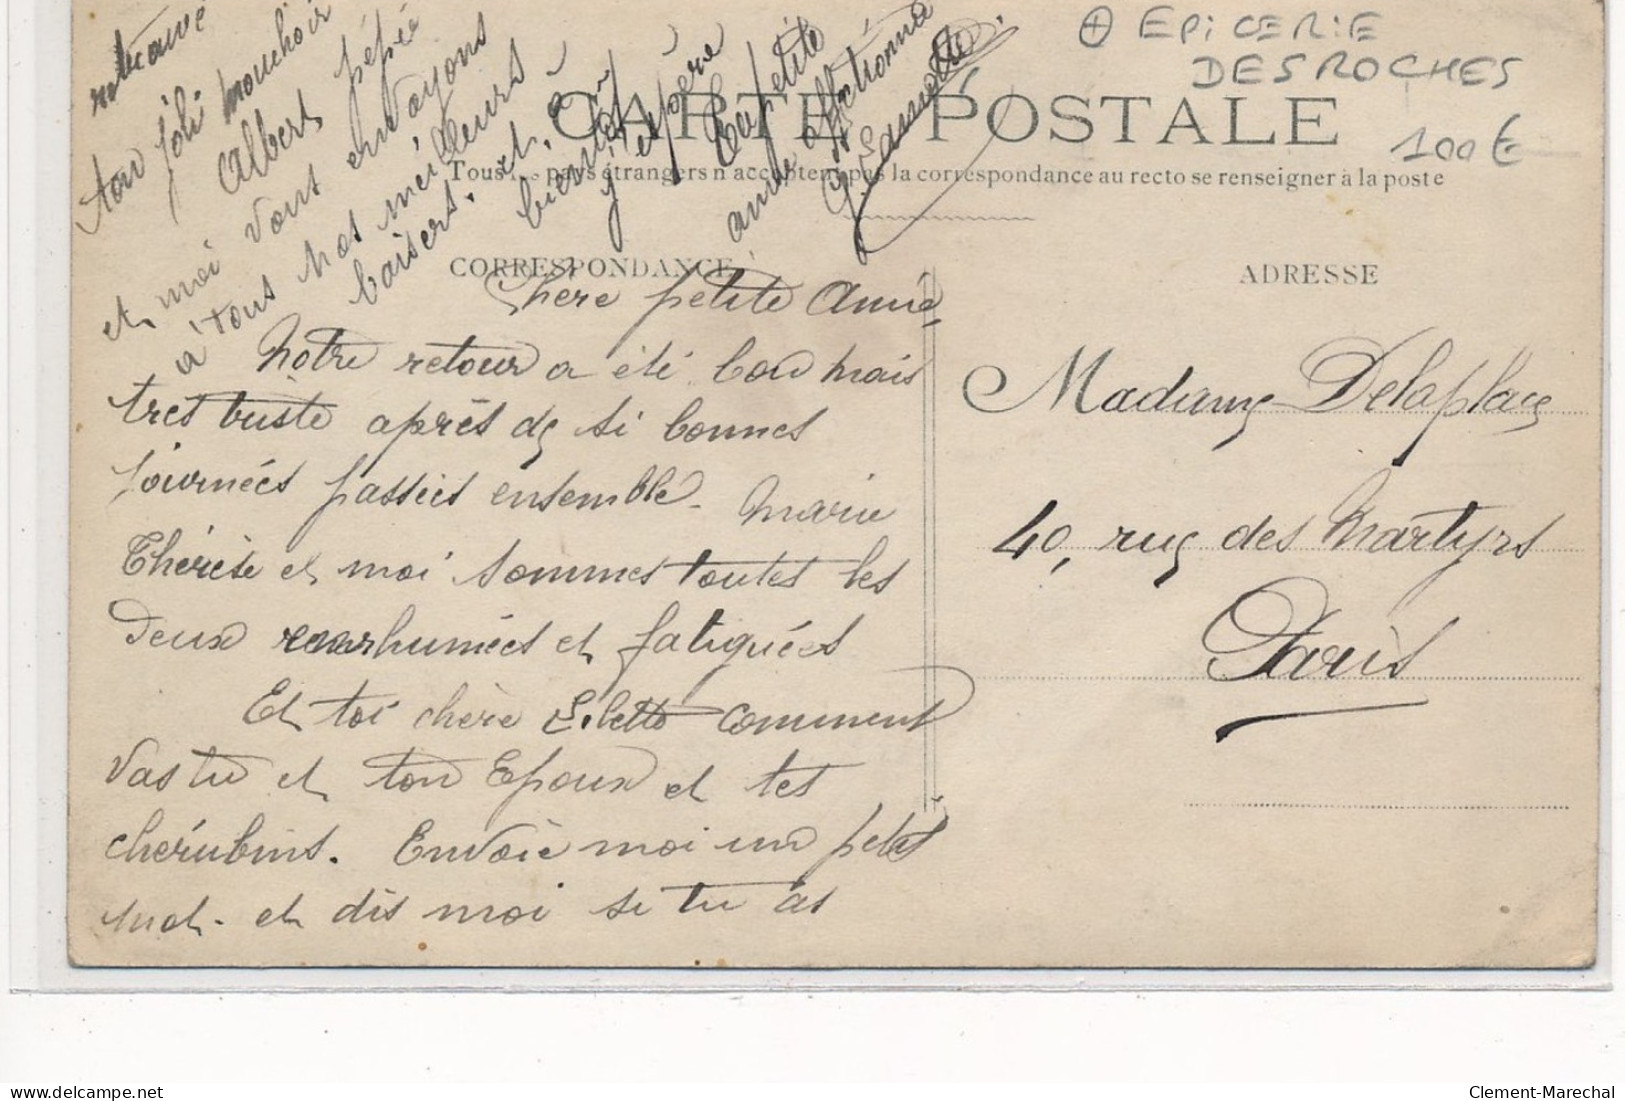 ⊕ EPICERIE
DESROCHES
100€
CARTE POSTALE
Tous les pays étrangers n'acceptent pas la correspondance au recto se renseigner à la poste
CORRESPONDANCE
Chère petite Amie,
Notre retour a été bon mais
tres triste après de si bonnes
journées passées ensemble. Marie
Thérèse et moi sommes toutes les
deux enrhumées et fatiguées
Et toi chère Lilette comment
vas tu et ton Epoux et tes
chérubins. Envoie moi un petit
mot. et dis moi si tu as
retrouvé
ton joli mouchoir
Albert, pépée
et moi vous envoyons
à tous nos meilleurs
baisers. et, à
bientôt
j'espère
Ta petite
amie affectionnée
ADRESSE
Madame Delaplace
40, rue des Martyrs
Paris
delcampe.net
Clement-Marechal